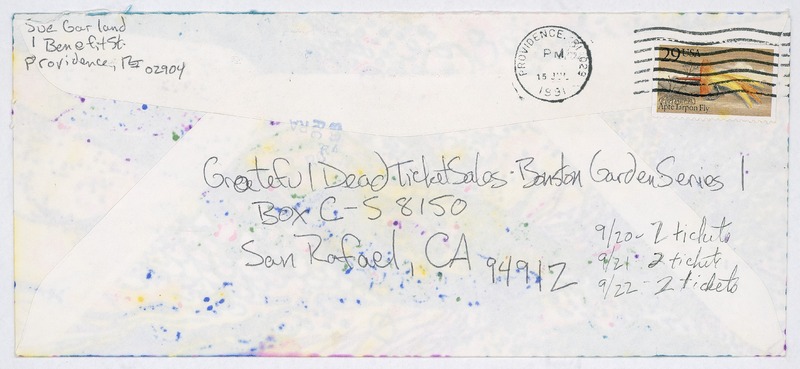 Sue Garland
1 Benefit St.
Providence, RI 02904
PROVIDENCE, RI 029
PM
15 JUL
1991
29 USA
Apte Tarpon Fly
Grateful Dead Ticket Sales - Bonston Garden Series 1
Box C-S 8150
San Rafael, CA 94912
9/20 - 2 tickets
9/21 - 2 tickets
9/22 - 2 tickets